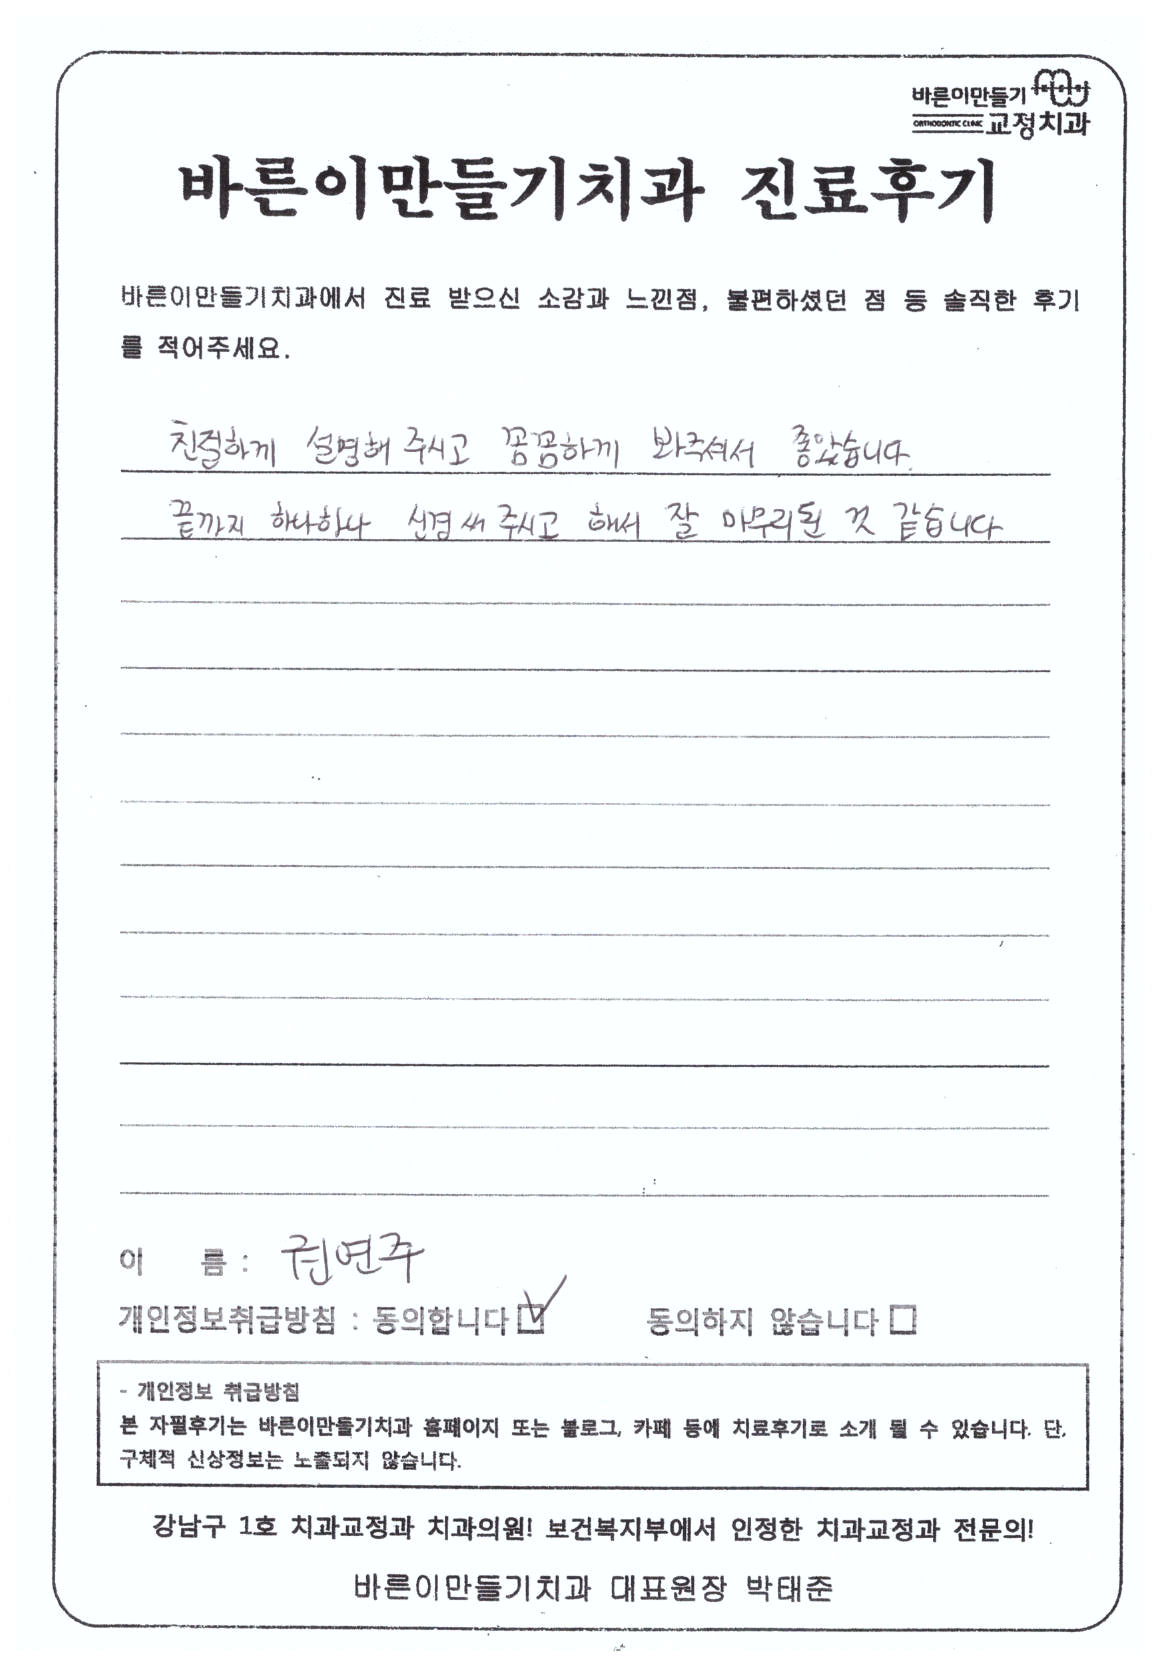 바른이만들기
ORTHODONTIC CLINIC 교정치과
바른이만들기치과 진료후기
바른이만들기치과에서 진료 받으신 소감과 느낀점, 불편하셨던 점 등 솔직한 후기
를 적어주세요.
친절하게 설명해 주시고 꼼꼼하게 봐주셔서 좋았습니다.
끝까지 하나하나 신경써 주시고 해서 잘 마무리된 것 같습니다
이 름 : 권연주
개인정보취급방침 : 동의합니다 동의하지 않습니다
- 개인정보 취급방침
본 자필후기는 바른이만들기치과 홈페이지 또는 블로그, 카페 등에 치료후기로 소개 될 수 있습니다. 단,
구체적 신상정보는 노출되지 않습니다.
강남구 1호 치과교정과 치과의원! 보건복지부에서 인정한 치과교정과 전문의!
바른이만들기치과 대표원장 박태준